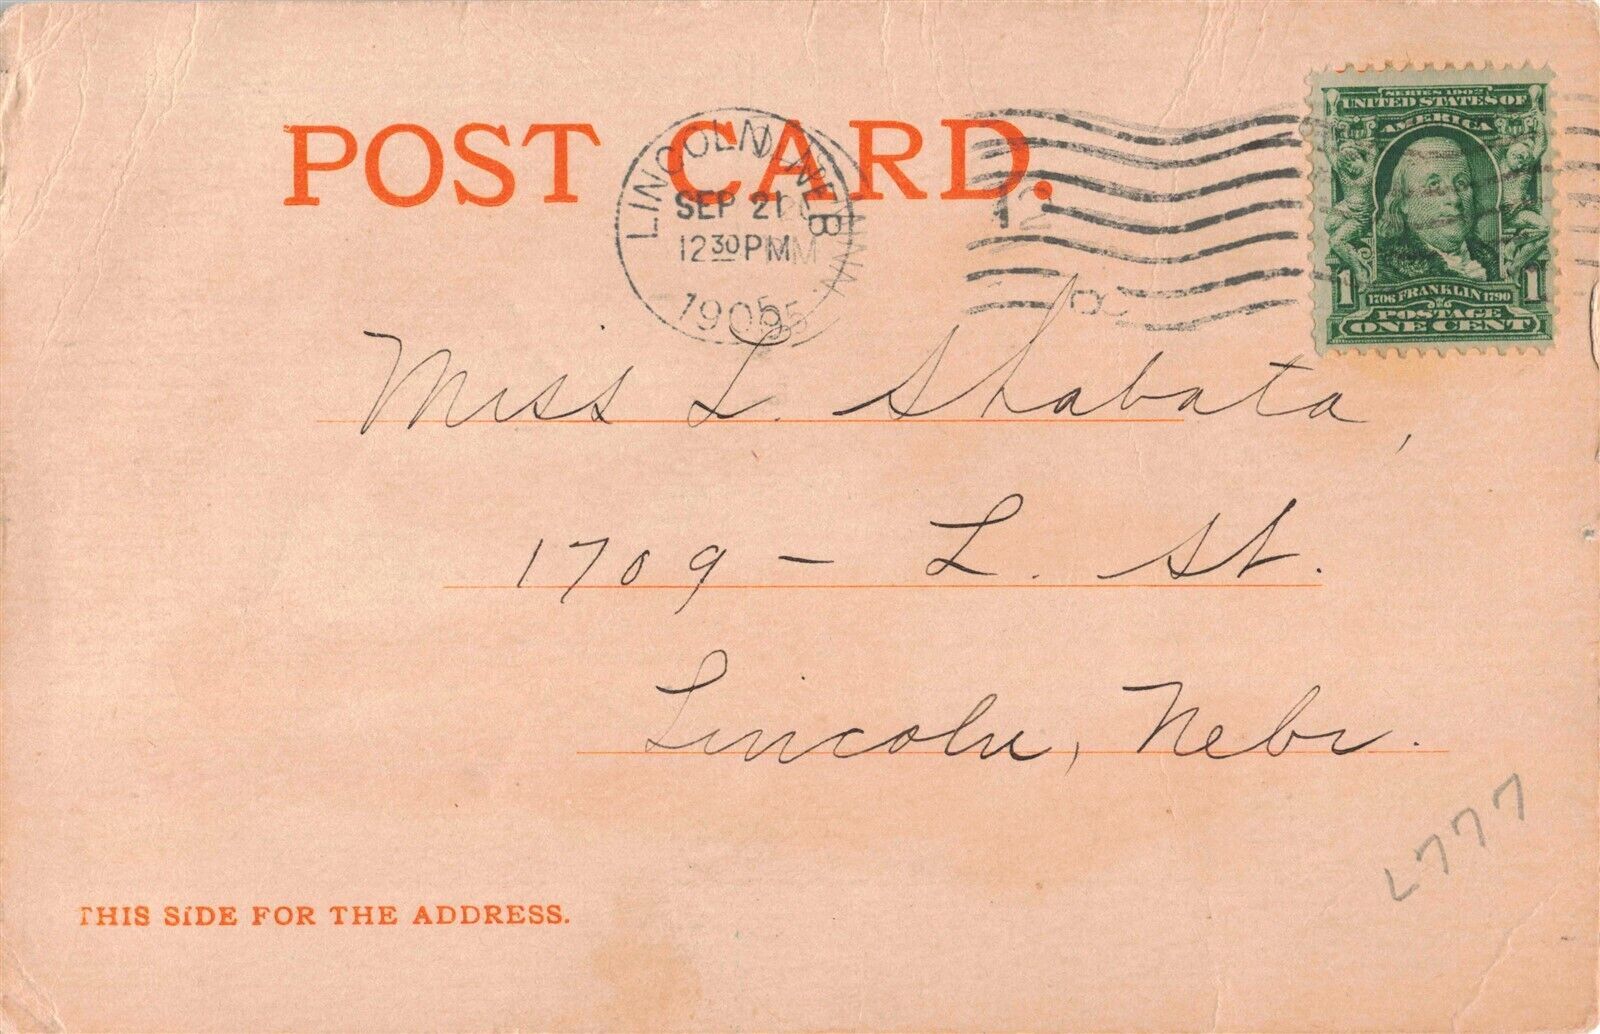 POST CARD.
LINCOLN, NEB
SEP 21
12 30 PM
1905
SERIES 1902
UNITED STATES OF
AMERICA
1 1706 FRANKLIN 1790 1
POSTAGE
ONE CENT
Miss L. Shabata,
1709 - L. St.
Lincoln, Nebr.
L777
THIS SIDE FOR THE ADDRESS.